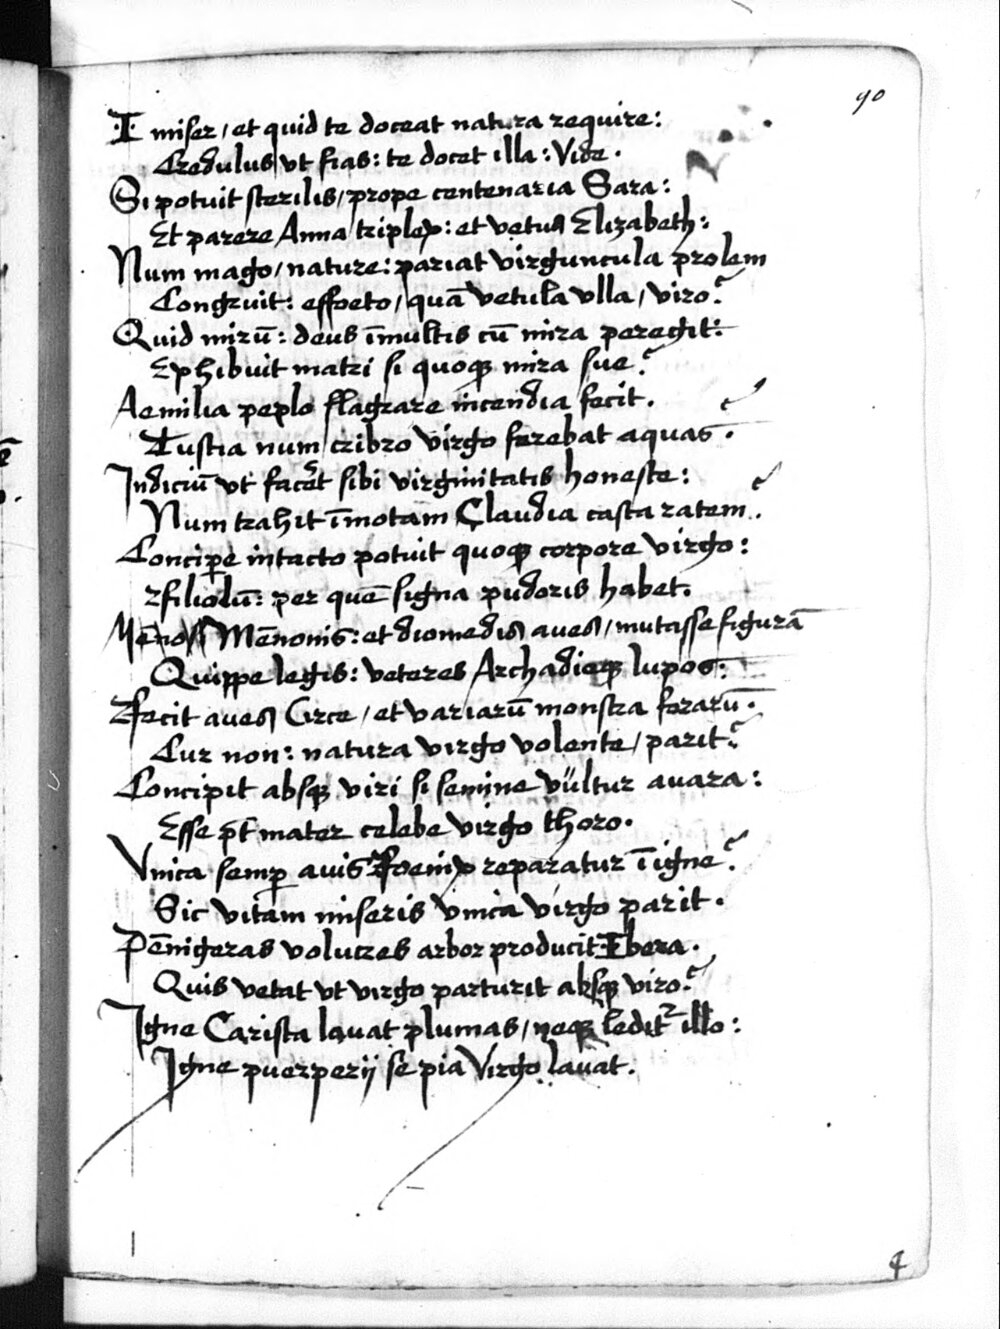 90
I miser / et quid te doceat natura require:
Credulus ut fias: te docet illa: Vide.
Si potuit sterilis / prope centenaria Sara:
Et parere Anna triplex: et vetus Elizabeth:
Num mago / nature: pariat virguncula prolem
Congruit: effoeto / quā vetula ulla / viro?
Quid mirū: deus ī multis cū mira peregit:
Exhibuit matri si quoqꝫ mira sue?
Aemilia peplo flagrare incendia fecit.
Tustia num cribro virgo ferebat aquas.
Indiciū ut facēt sibi virginitatis honeste:
Num trahit īmotam Claudia casta ratem.
Concipe intacto potuit quoqꝫ corpore virgo:
filiolū: per quē signa pudoris habet.
Mēnonis: et diomedis aves / mutasse figurā
Quippe legis: veteres Archadieqꝫ lupos:
fecit aves Circe / et variarū monstra ferarū.
Cur non: natura virgo volente / parit?
Concipit absqꝫ viri si semine vultur avara:
Esse pt̄ mater celebe virgo thoro.
Unica semp̱ avis foenix reparatur ī igne?
Sic vitam miseris unica virgo parit.
Pēnigeras volucres arbor producit Ibera.
Quis vetat ut virgo parturit absqꝫ viro?
Igne Carista lavat plumas / neqꝫ leditr illo:
Igne puerperij se pia Virgo lavat.